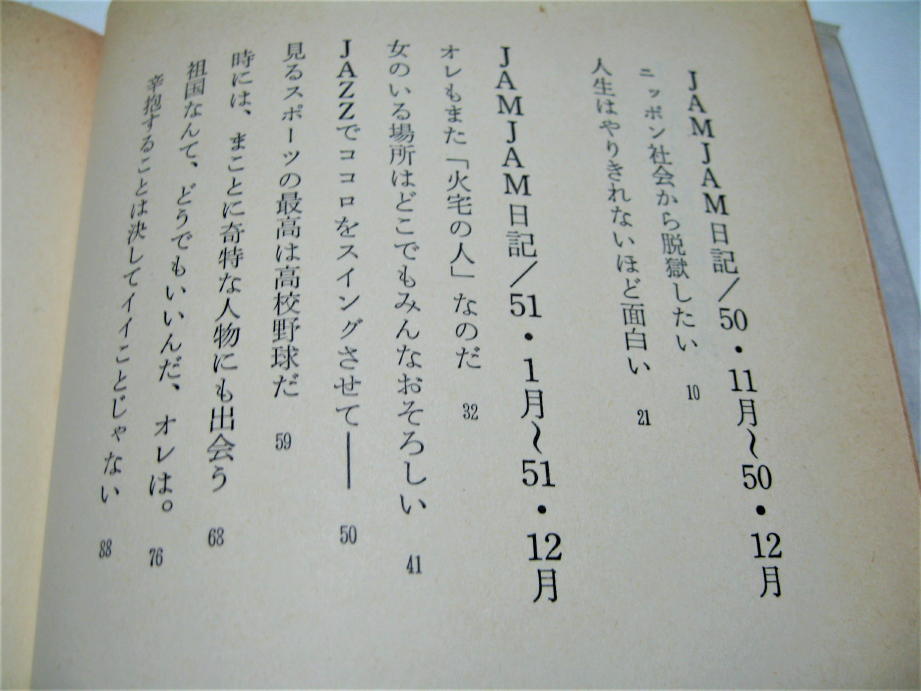 JAMJAM日記/50・11月~50・12月
ニッポン社会から脱獄したい 10
人生はやりきれないほど面白い 21
JAMJAM日記/51・1月~51・12月
オレもまた「火宅の人」なのだ 32
女のいる場所はどこでもみんなおそろしい 41
JAZZでココロをスイングさせて── 50
見るスポーツの最高は高校野球だ 59
時には、まことに奇特な人物にも出会う 68
祖国なんて、どうでもいいんだ、オレは。 76
辛抱することは決してイイことじゃない 88